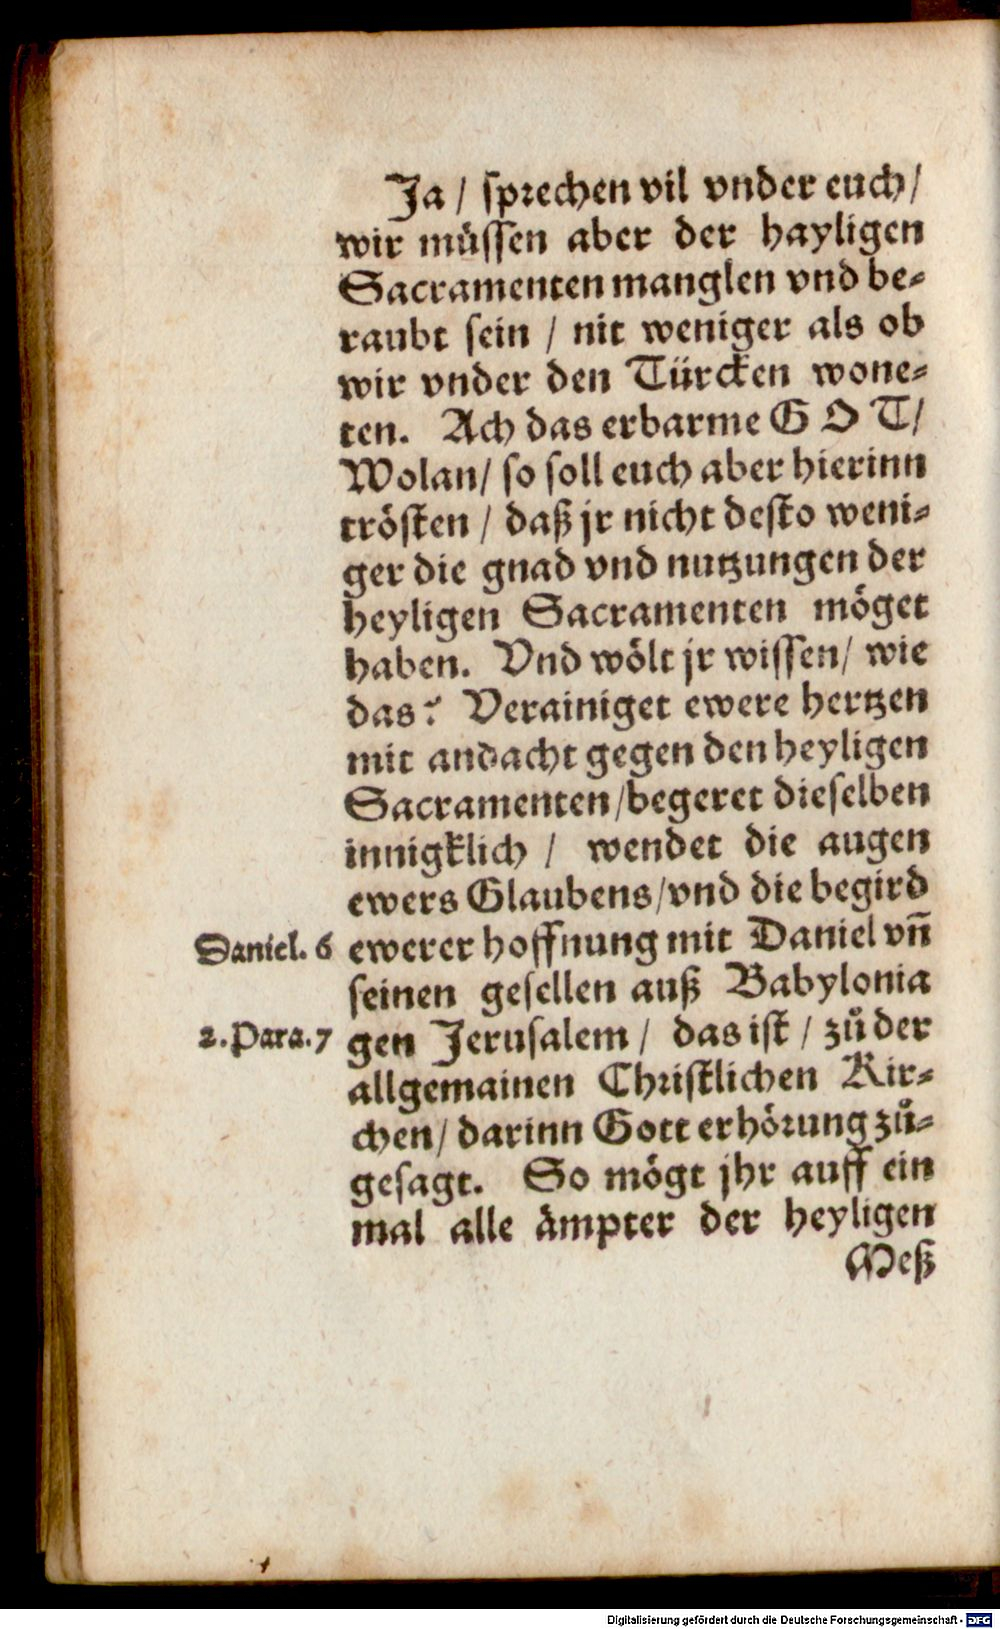 Ja / sprechen vil vnder euch /
wir müssen aber der hayligen
Sacramenten manglen vnd be-
raubt sein / nit weniger als ob
wir vnder den Türcken wone-
ten. Ach das erbarme GOT /
Wolan / so soll euch aber hierinn
trösten / daß jr nicht desto weni-
ger die gnad vnd nutzungen der
heyligen Sacramenten möget
haben. Vnd wölt jr wissen / wie
das? Verainiget ewere hertzen
mit andacht gegen den heyligen
Sacramenten / begeret dieselben
innigklich / wendet die augen
ewers Glaubens / vnd die begird
Daniel. 6 ewerer hoffnung mit Daniel vñ
seinen gesellen auß Babylonia
2. Para. 7 gen Jerusalem / das ist / zů der
allgemainen Christlichen Kir-
chen / darinn Gott erhörung zů-
gesagt. So mögt jhr auff ein
mal alle ämpter der heyligen
Meß
Digitalisierung gefördert durch die Deutsche Forschungsgemeinschaft - DFG